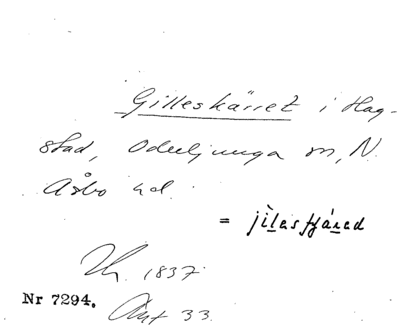 Gilleskärret i Hag-
stad, Oderljunga sn, N.
Åsbo hd.
= jìlasçá̱red
1837.
Nr 7294. Ant 33